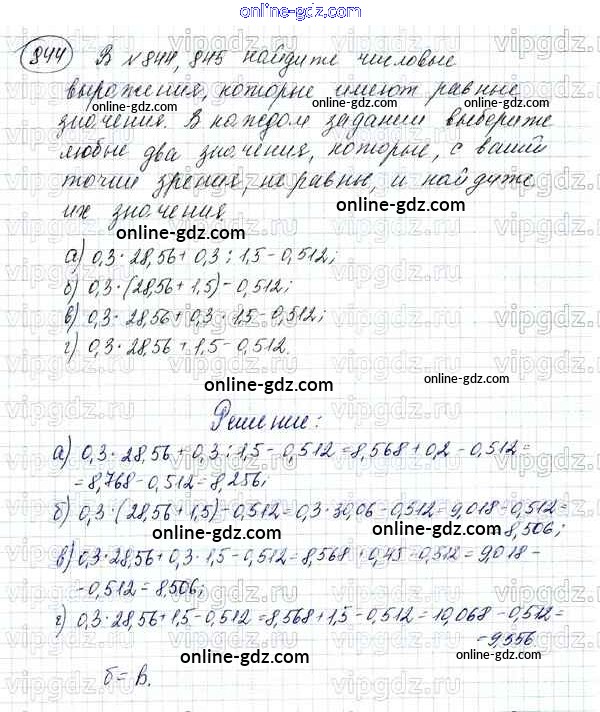 online-gdz.com
844 В №844, 845 найдите числовые
выражения, которые имеют равные
online-gdz.com online-gdz.com
значения. В каждом задании выберите
любые два значения, которые, с вашей
точки зрения, не равны, и найдите
их значения.
online-gdz.com
а) 0,3 · 28,56 + 0,3 : 1,5 - 0,512;
online-gdz.com
б) 0,3 · (28,56 + 1,5) - 0,512;
в) 0,3 · 28,56 + 0,3 · 1,5 - 0,512;
г) 0,3 · 28,56 + 1,5 - 0,512.
online-gdz.com online-gdz.com
Решение:
а) 0,3 · 28,56 + 0,3 : 1,5 - 0,512 = 8,568 + 0,2 - 0,512 =
online-gdz.com
= 8,768 - 0,512 = 8,256;
online-gdz.com
б) 0,3 · (28,56 + 1,5) - 0,512 = 0,3 · 30,06 - 0,512 = 9,018 - 0,512 =
online-gdz.com = 8,506;
в) 0,3 · 28,56 + 0,3 · 1,5 - 0,512 = 8,568 + 0,45 - 0,512 = 9,018 -
- 0,512 = 8,506;
online-gdz.com
г) 0,3 · 28,56 + 1,5 - 0,512 = 8,568 + 1,5 - 0,512 = 10,068 - 0,512 =
= 9,556
online-gdz.com online-gdz.com
б = в.
online-gdz.com